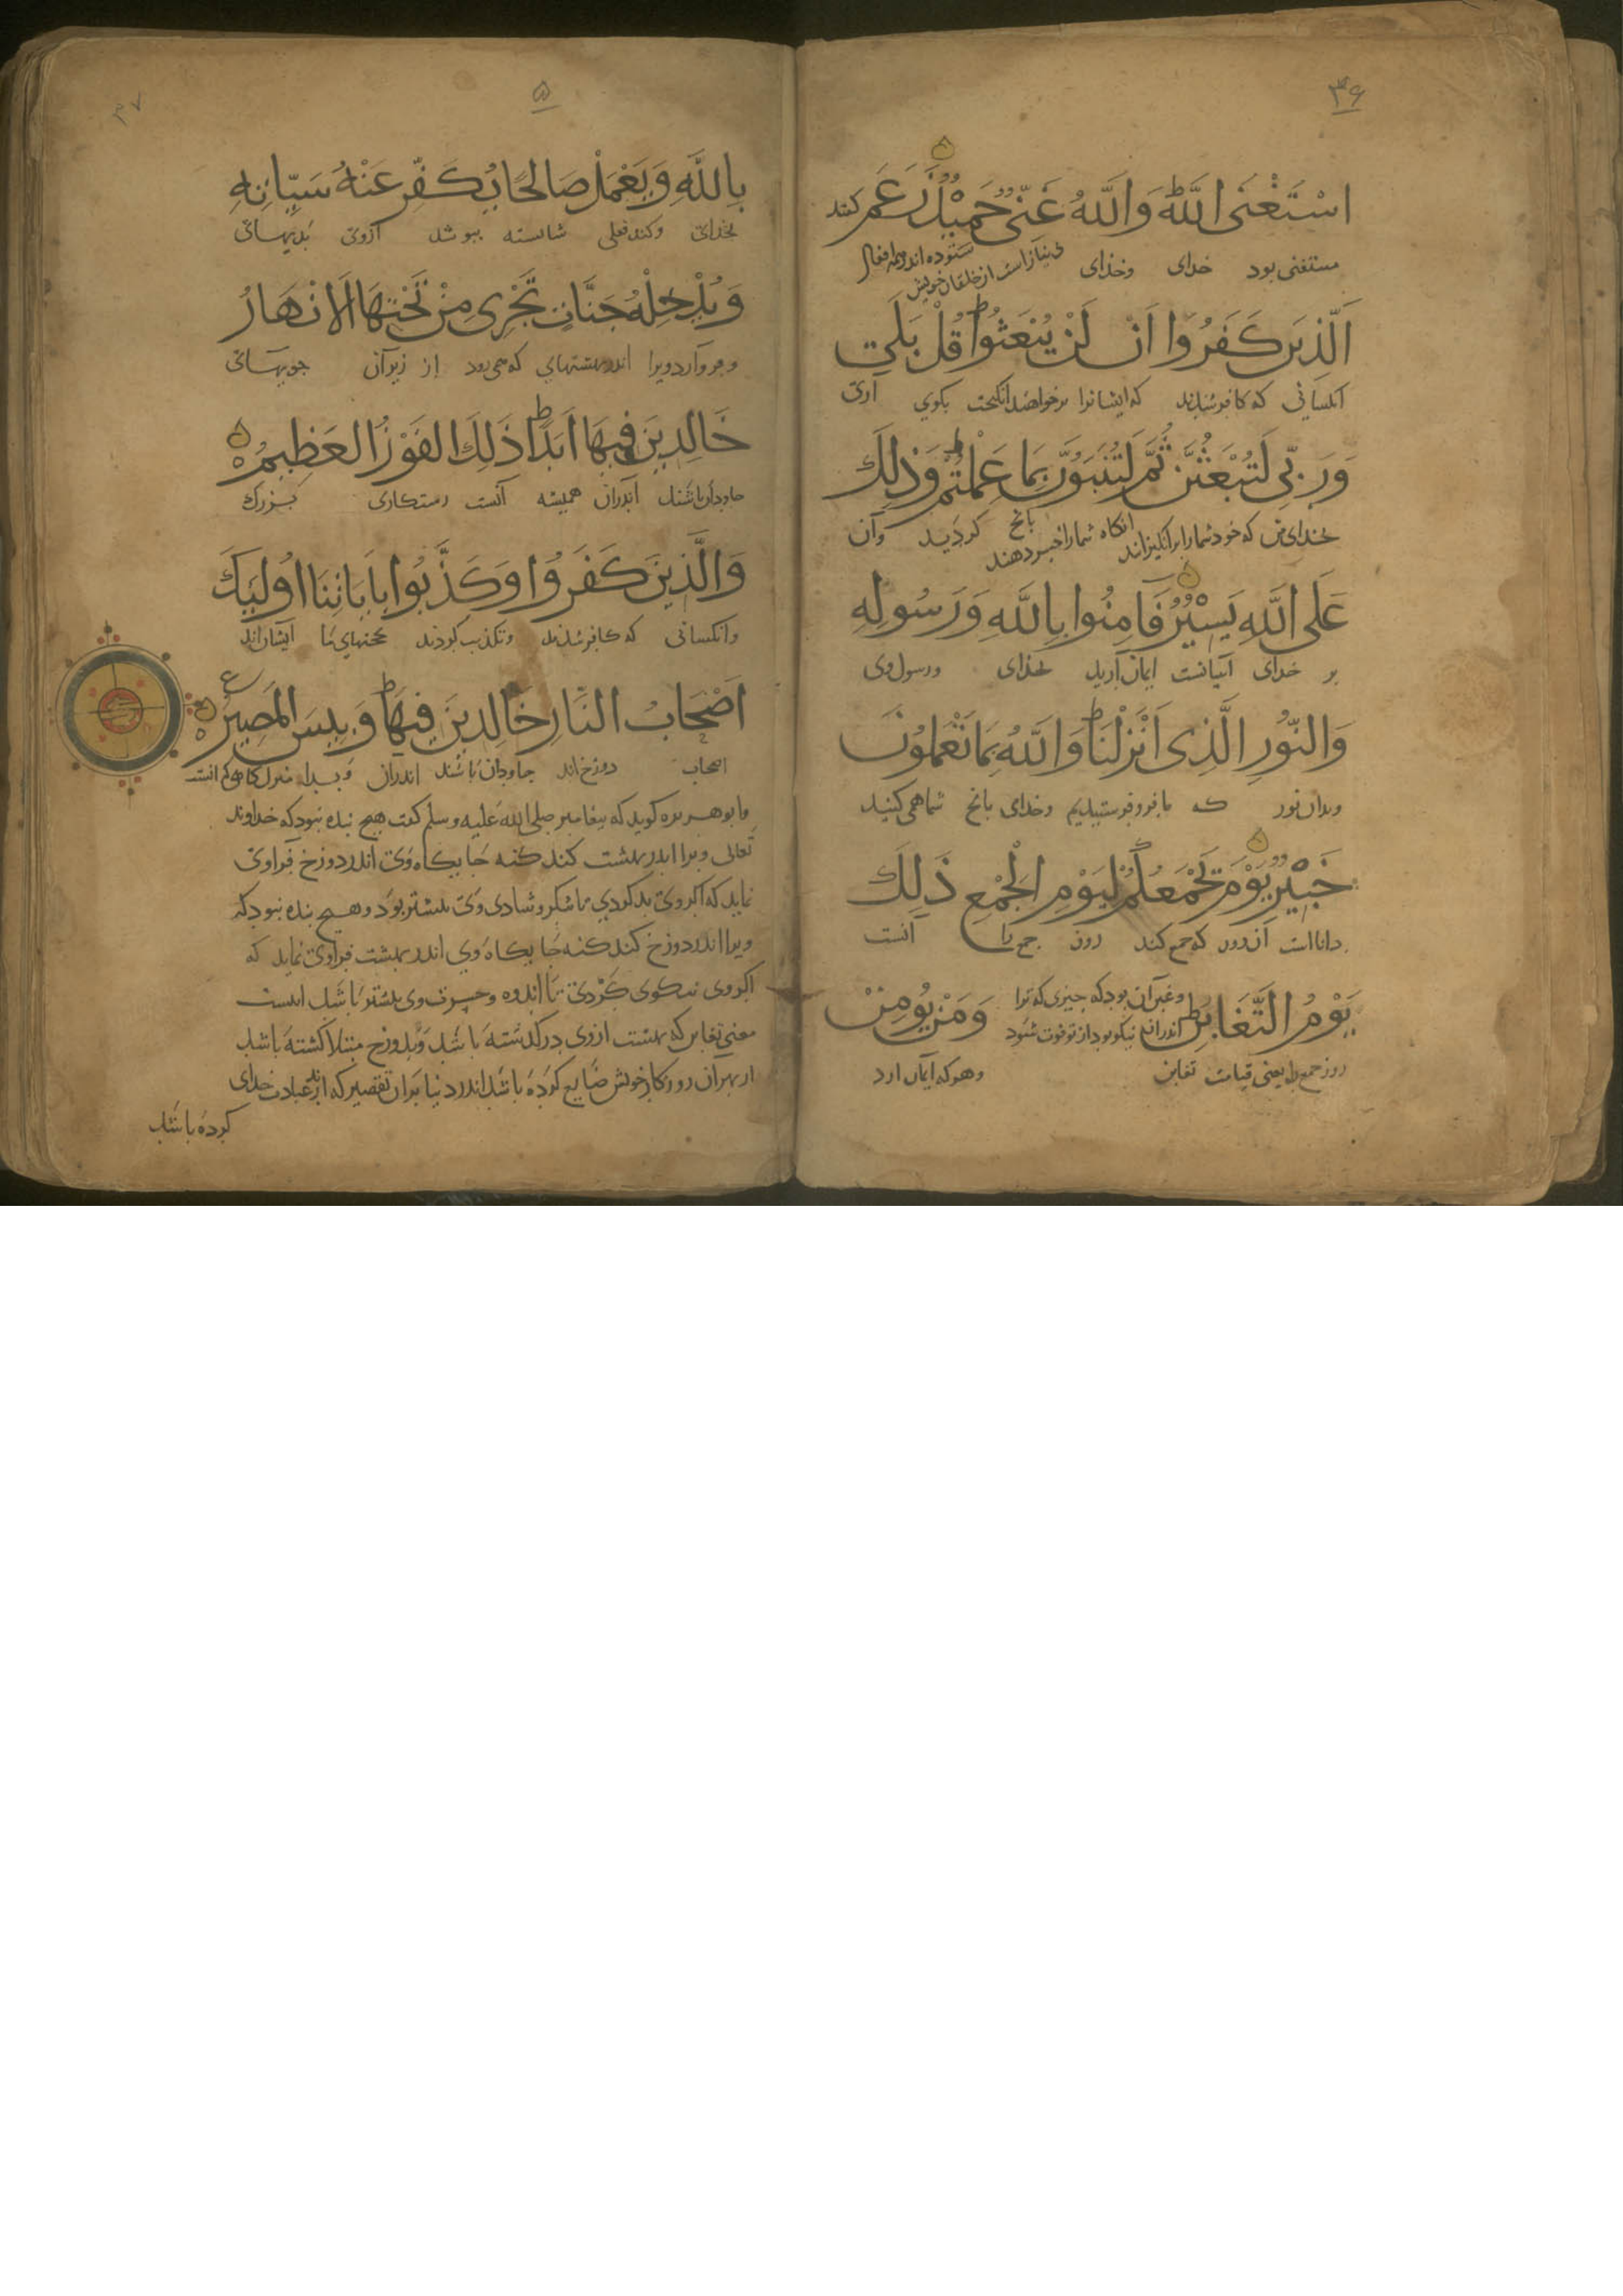 ۳۶
اسْتَغْنَى اللَّهُ ط وَاللَّهُ غَنِيٌّ حَمِيْدٌ زَعَمَ
گفتند
مستغنی بود خدای وخدای بی نیاز است از خلقان خویش ستوده اندر همه افعال
الَّذِينَ كَفَرُوا اَنْ لَنْ يُبْعَثُوا ط قُلْ بَلَى
آنکسانی که کافر شدند که ایشانرا برنخواهند انگیخت بگوی آری
وَرَبِّي لَتُبْعَثُنَّ ثُمَّ لَتُنَبَّؤُنَّ بِمَا عَمِلْتُمْ ط وَذَلِكَ
بخدای من که خود شمارا برانگیزاند انگاه شمارا خبر دهند بانچ کردید وآن
عَلَى اللَّهِ يَسِيْرٌ فَامِنُوا بِاللَّهِ وَرَسُولِهِ
بر خدای آسانست ایمان آرید بخدای ورسول وی
وَالنُّورِ الَّذِى اَنْزَلْنَا ط وَاللَّهُ بِمَا تَعْمَلُونَ
وبدان نور که ما فرو فرستیدیم وخدای بانچ شما همی کنید
خَبِيْرٌ يَوْمَ يَجْمَعُكُمْ لِيَوْمِ الْجَمْعِ ذَلِكَ
دانا است آن روز که جمع کند روز جمع را آنست
يَوْمُ التَّغَابُنِ ط وغبن آن بود که چیزی که ترا اندران نیکو بود از تو فوت شود وَمَنْ يُؤمِنْ
روز جمع را یعنی قیامت تغابن وهر که ایمان ارد
۳۷
۵
بِاللَّهِ وَيَعْمَلْ صَالِحًا يُكَفِّرْ عَنْهُ سَيِّاتِهِ
بخدای وکند فعلی شایسته بپوشد ازوی بدیهائی
وَيُدْخِلْهُ جَنَّاتٍ تَجْرِى مِنْ تَحْتِهَا الاَنْهَارُ
وفرو آرد ویرا اندر بهشتهایی که می رود از زیر آن جویهائی
خَالِدِينَ فِيهَا اَبَدًا ط ذَلِكَ الفَوْزُ العَظِيمُ ه
جاودان باشند اندران همیشه آنست رستکاری بزرگ
وَالَّذِينَ كَفَرُوا وَكَذَّبُوا بِاَيَاتِنَا اُولَئِكَ
وانکسانی که کافر شدند وتکذیب کردند حجتهای ما ایشان اند
اَصْحَابُ النَّارِ خَالِدِينَ فِيهَا ط وَبِئسَ المَصِيرُ ه ع
اصحاب دوزخ اند جاودان باشند اندران وبدا منزل کاهی کم انست
وابو هریره گوید که پیغامبر صلی الله علیه وسلم گفت هیچ بنده نبود که خداوند
تعالی ویرا اندر بهشت کند کنه جایگاه وی اندر دوزخ فراوی
نماید که اگر وی بد کردی تا شکر وشادی وی بیشتر بود وهیچ بنده نبود که
ویرا اندر دوزخ کند کنه جایگاه وی اندر بهشت فراوی نماید که
اگر وی نیکوی کردی تا اندوه وحسرت وی بیشتر باشد اینست
معنی تغابن که بهشت ازوی درگذشته باشد وبدوزخ مبتلا گشته باشد
از بهر آن روزگار خویش ضایع کرده باشد اندر دنیا بران تقصیر که اندر عبادت خدای
کرده باشد